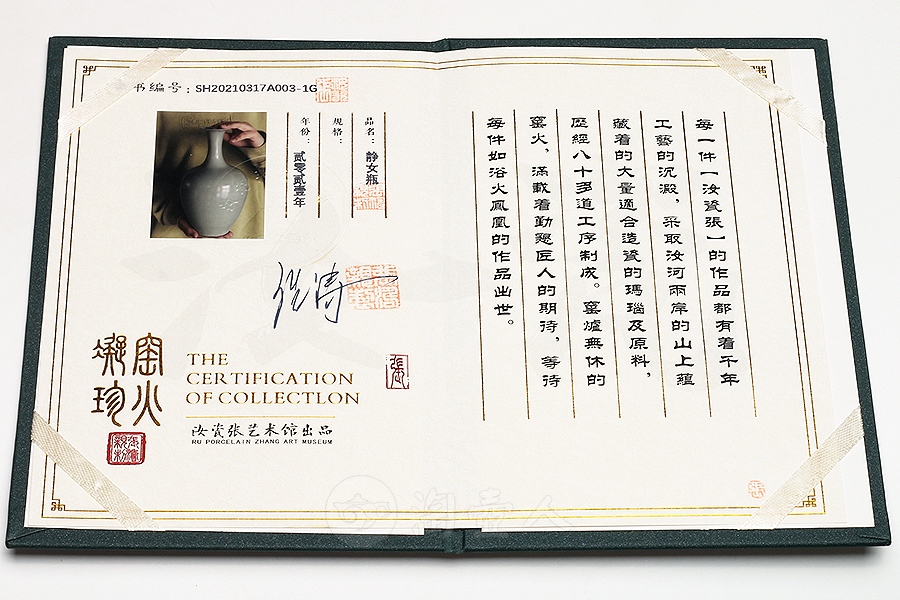 书编号：SH20210317A003-1G
品名：静女瓶
规格：
年份：贰零贰壹年
张涛
窑火
凝珍
THE
CERTIFICATION
OF COLLECTLON
汝瓷张艺术馆出品
RU PORCELAIN ZHANG ART MUSEUM
每一件【汝瓷張】的作品都有着千年
工藝的沉澱，采取汝河兩岸的山上蘊
藏着的大量適合造瓷的瑪瑙及原料，
歷經八十多道工序制成。窑爐無休的
窑火，滿載着勤懇匠人的期待，等待
每件如浴火鳳凰的作品出世。